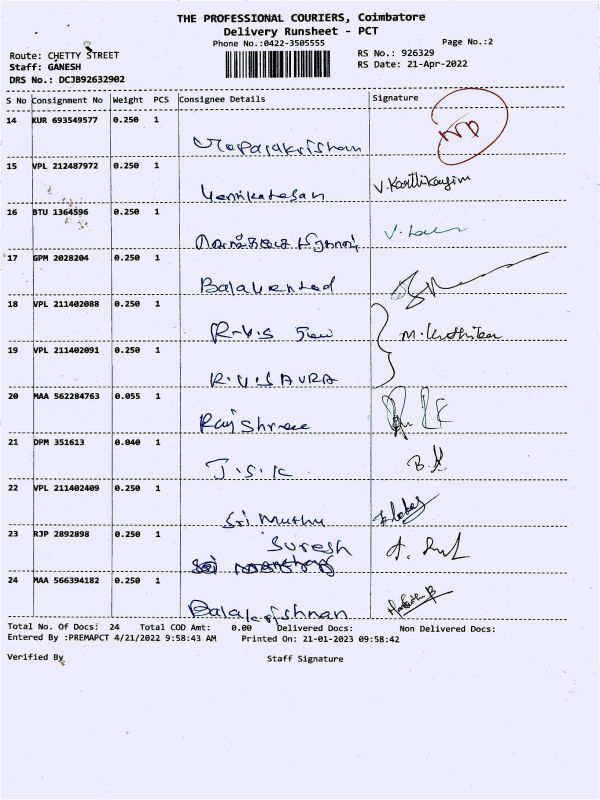 THE PROFESSIONAL COURIERS, Coimbatore
Delivery Runsheet - PCT
Phone No.:0422-3505555
Page No.:2
Route: CHETTY STREET
Staff: GANESH
DRS No.: DCJB92632902
RS No.: 926329
RS Date: 21-Apr-2022
S No Consignment No Weight PCS Consignee Details Signature
14 KUR 693549577 0.250 1 ND
15 VPL 212487972 0.250 1 Venkatesan V.Karthikayini
16 BTU 1364596 0.250 1
17 GPM 2028204 0.250 1
18 VPL 211402088 0.250 1 R-V.S
19 VPL 211402091 0.250 1 R.V.S AURA
20 MAA 562284763 0.055 1 Rajshree
21 DPM 351613 0.040 1 J.S.K B.K
22 VPL 211402409 0.250 1 Sri Muthu
23 RJP 2892898 0.250 1 Suresh
24 MAA 566394182 0.250 1 Balakrishnan
Total No. Of Docs: 24 Total COD Amt: 0.00 Delivered Docs: Non Delivered Docs:
Entered By :PREMAPCT 4/21/2022 9:58:43 AM Printed On: 21-01-2023 09:58:42
Verified By Staff Signature